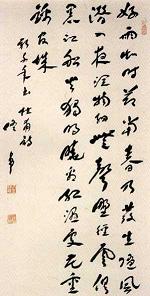 好雨知時節當春乃發生隨風
潛入夜潤物細無聲野徑雲俱
黑江船火獨明曉看紅濕處花重
錦官城
杜甫詩